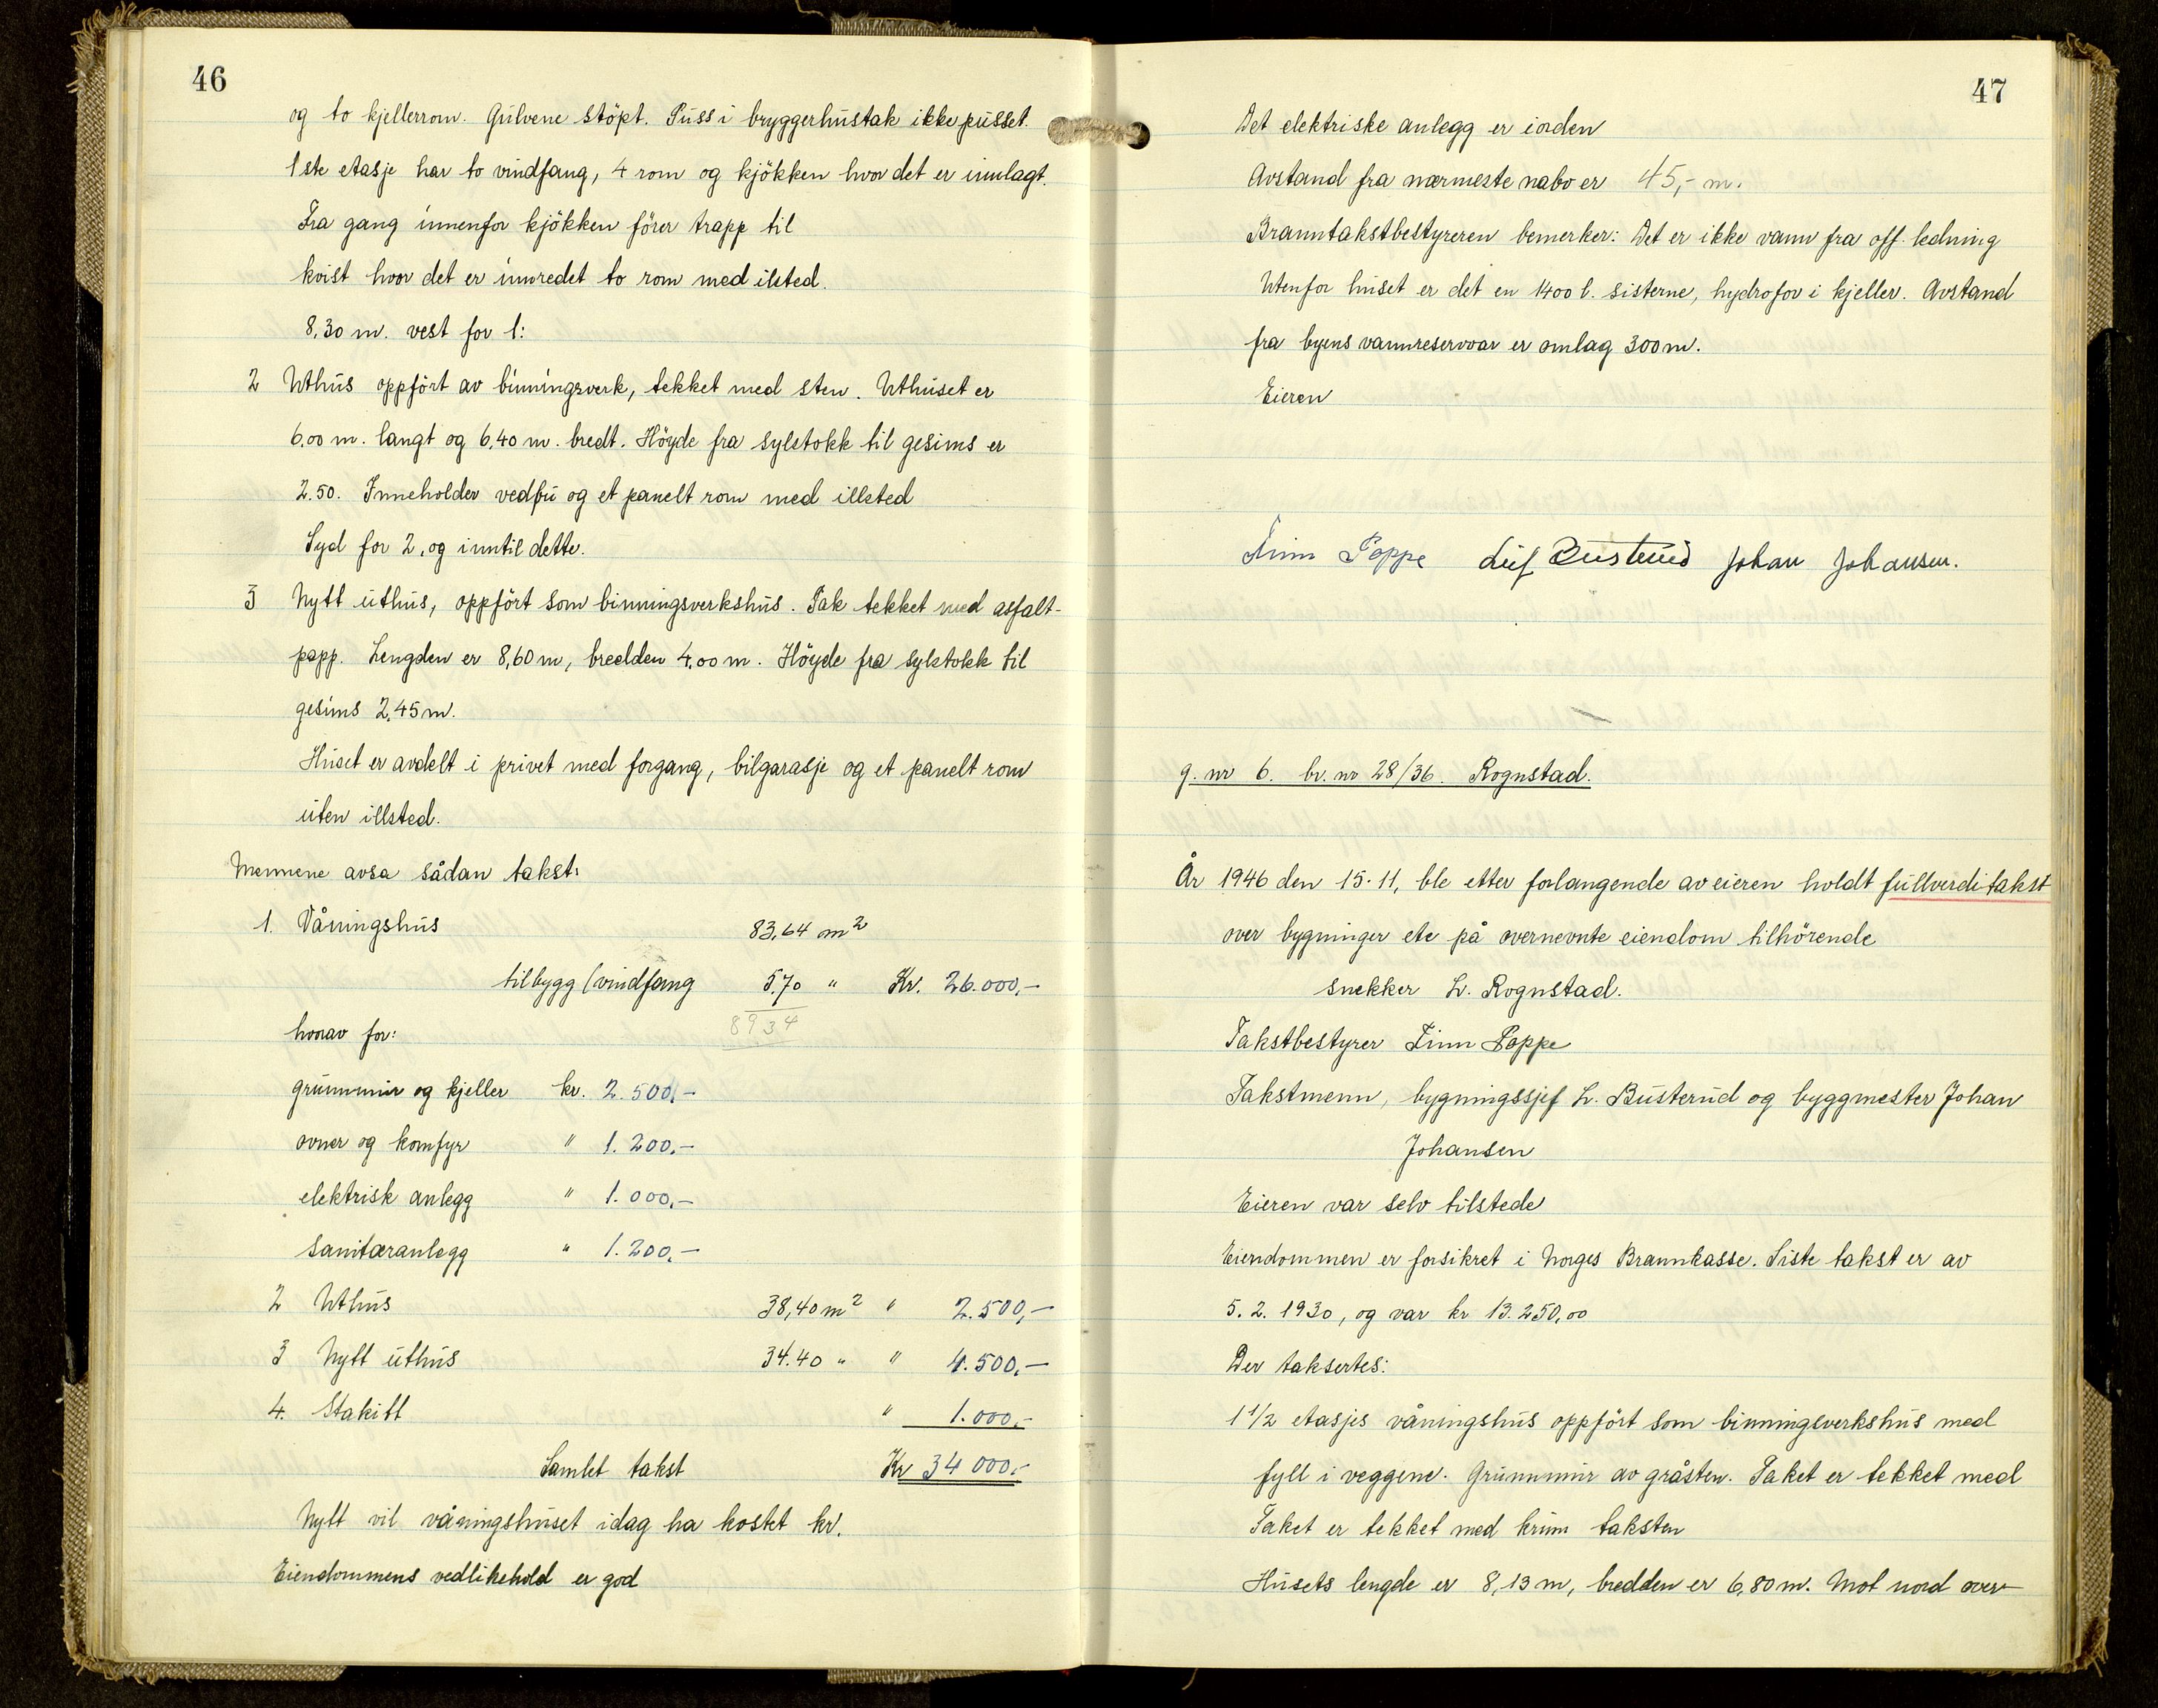 46
og to kjellerrom. Gulvene stöpt. Puss i bryggerhustak ikke pusset.
1ste etasje har to vindfang, 4 rom og kjökken hvor det er innlagt.
Fra gang innenfor kjökken förer trapp til
kvist hvor det er innredet to rom med ilsted.
8,30 m. vest for 1:
2 Uthus oppfört av binningsverk, tekket med sten. Uthuset er
6,00 m. langt og 6,40 m. bredt. Höyde fra sylstokk til gesims er
2.50. Inneholder vedbu og et panelt rom med illsted
Syd for 2, og inntil dette.
3 Nytt uthus, oppfört som binningsverkshus. Tak tekket med asfalt-
papp. Lengden er 8,60 m, bredden 4,00 m. Höyde fra sylstokk til
gesims 2,45 m.
Huset er avdelt i privet med forgang, bilgarasje og et panelt rom
uten illsted.
Mennene avsa sådan takst:
1. Våningshus 83,64 m²
tilbygg (vindfang 5,70 " Kr. 26.000,-
hvorav for: 8934
grunnmur og kjeller kr. 2.500,-
ovner og komfyr " 1.200,-
elektrisk anlegg " 1.000,-
sanitæranlegg " 1.200,-
2 Uthus 38,40 m² " 2.500,-
3 Nytt uthus 34.40 " " 4.500,-
4. Stakitt " 1.000,-
Samlet takst Kr 34 000,-
Nytt vil våningshuset idag ha kostet kr.
Eiendommens vedlikehold er god
47
Det elektriske anlegg er iorden
Avstand fra nærmeste nabo er 45,- m.
Branntakstbestyreren bemerker: Det er ikke vann fra off. ledning
Utenfor huset er det en 1400 l. sisterne, hydrofor i kjeller. Avstand
fra byens vannreservoar er omlag 300 m.
Eieren
Finn Poppe Leif Busterud Johan Johansen.
g. nr 6. br. nr 28/36. Rognstad.
År 1946 den 15.11, ble etter forlangende av eieren holdt fullverditakst
over bygninger etc på overnevnte eiendom tilhörende
snekker L. Rognstad.
Takstbestyrer Finn Poppe
Takstmenn, bygningssjef L. Busterud og byggmester Johan
Johansen
Eieren var selv tilstede
Eiendommen er forsikret i Norges Brannkasse. Siste takst er av
5. 2. 1930, og var kr 13.250,00
Der taksertes:
1 1/2 etasjes våningshus oppfört som binningsverkshus med
fyll i veggene. Grunnmur av gråsten. Taket er tekket med
Taket er tekket med krum taksten
Husets lengde er 8,13 m, bredden er 6,80 m. Mot nord over-